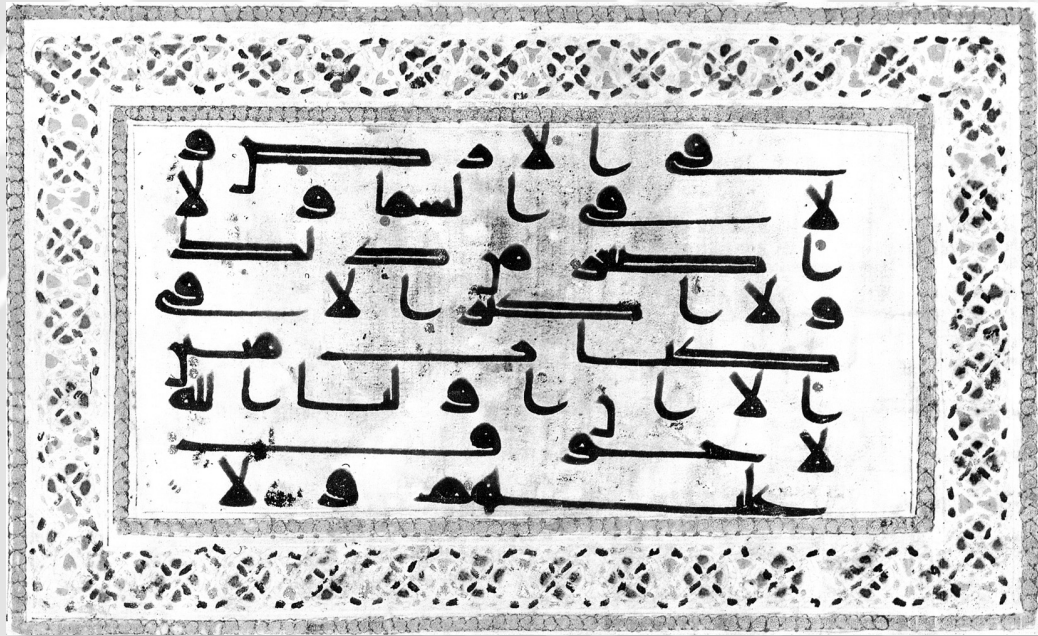 في الارض و
لا في السما ولا
ا صغر من ذلك
ولا اكبر الا في
كتاب مبين
الا ان اوليا الله
لا خوف
عليهم ولا